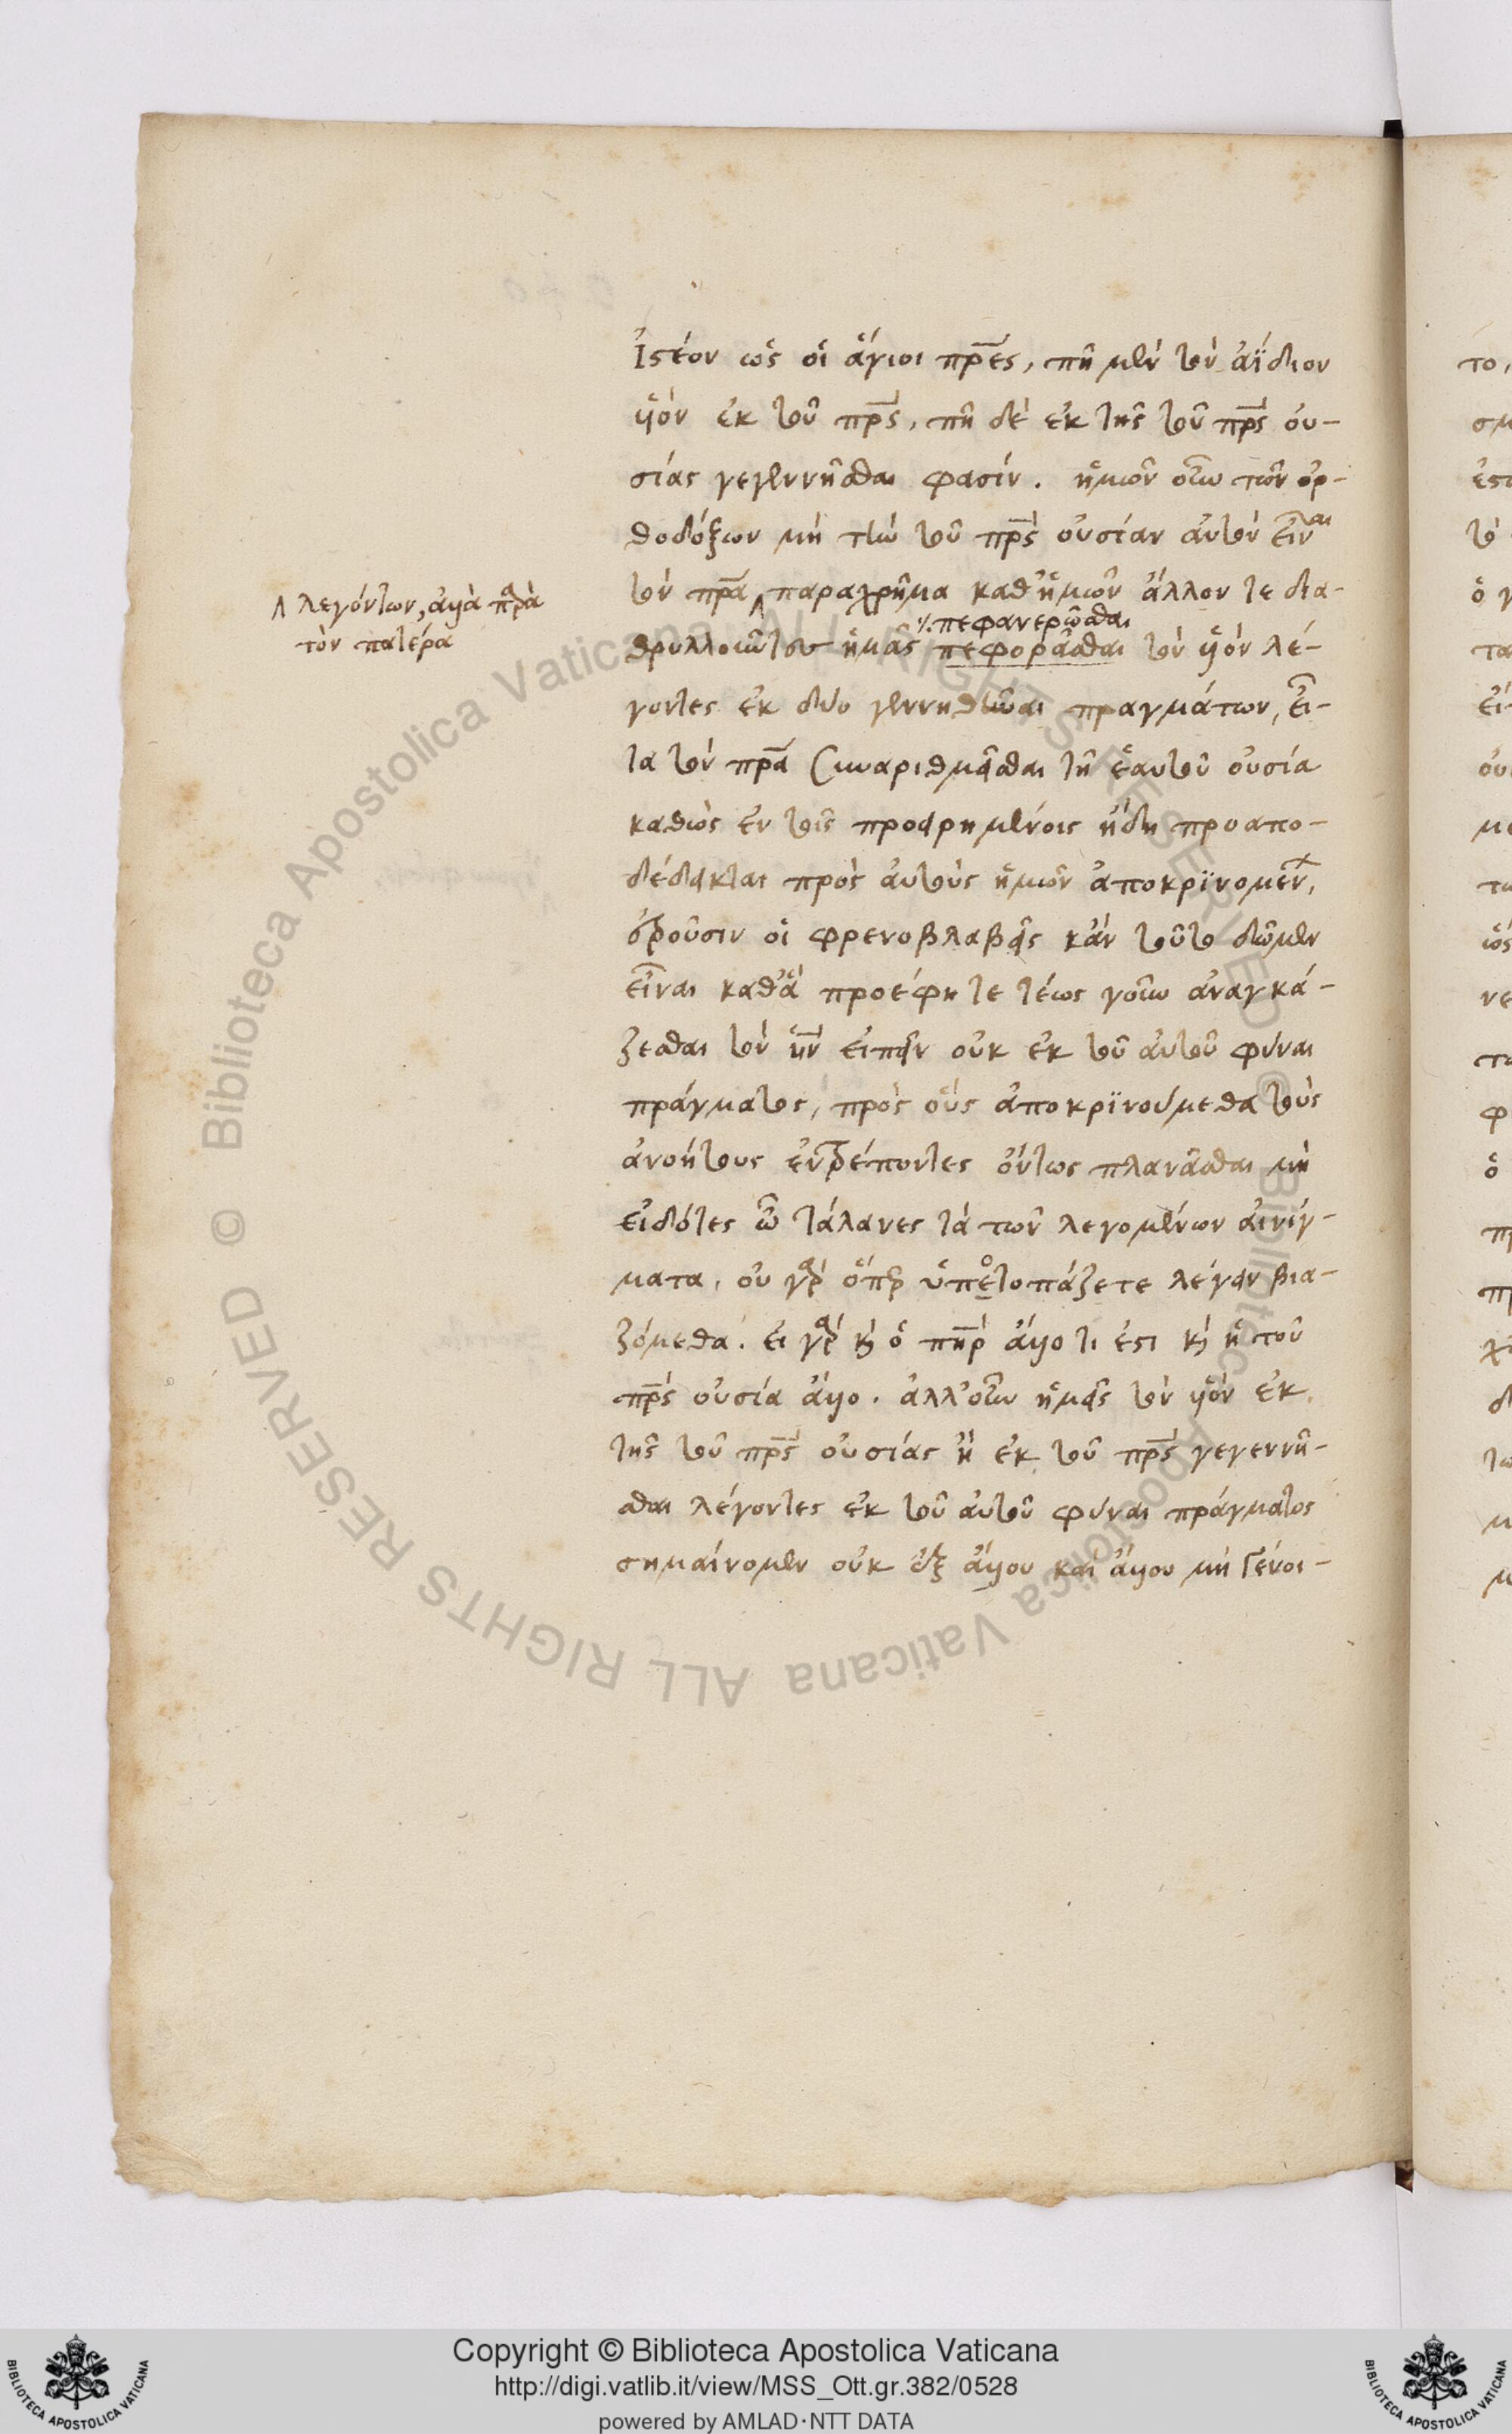 Ἰστέον ὡς οἱ ἅγιοι πρ̅ες, πῆ μὲν τὸν ἀΐδιον
υἱὸν ἐκ τοῦ πρ̅ς, πῆ δὲ ἐκ τῆς τοῦ πρ̅ς οὐ-
σίας γεγεννῆσθαι φασίν. ἡμῶν οὕτω τῶν ὀρ-
θοδόξων μὴ τὴν τοῦ πρ̅ς οὐσίαν αὐτὸν εἶναι
τὸν πρ̅α ⁁ παραχρῆμα καθ' ἡμῶν ἄλλον τε δια-
⁁ λεγόντων, ἀλλὰ παρὰ
τὸν πατέρα
·/. πεφανερῶσθαι
θρυλλοῦντων ἡμᾶς πεφορᾶσθαι τὸν υἱὸν λέ-
γοντες ἐκ δύο γεννηθῆναι πραγμάτων, εἶ-
τα τὸν πρ̅α συναριθμεῖσθαι τῇ ἑαυτοῦ οὐσία
καθὼς ἐν τοῖς προειρημένοις ἤδη προαπο-
δέδεικται πρὸς αὐτοὺς ἡμῶν ἀποκρϊνομένων,
ἐροῦσιν οἱ φρενοβλαβεῖς κἂν τοῦτο δῶμεν
εἶναι καθ' ἃ προέφητε τέως γοῦν ἀναγκά-
ζεσθαι τὸν υἱ̅ν εἰπεῖν οὐκ ἐκ τοῦ αὐτοῦ φύναι
πράγματος, πρὸς οὓς ἀποκρϊνούμεθα τοὺς
ἀνοήτους ἐντρέποντες ὄντως πλανᾶσθαι μὴ
εἰδότες ὦ τάλανες τὰ τῶν λεγομένων αἰνίγ-
ματα, οὐ γὰρ ὅπερ ὑπετοπάζετε λέγειν βια-
ζόμεθα. εἰ γὰρ κ̀ ὁ πη̅ρ ἄλλο τι ἐστι κ̀ ἡ τοῦ
πρ̅ς οὐσία ἄλλο. ἀλλ' οὕτω ἡμεῖς τὸν υἱὸν ἐκ
τῆς τοῦ πρ̅ς οὐσίας ἢ ἐκ τοῦ πρ̅ς γεγεννῆ-
σθαι λέγοντες ἐκ τοῦ αὐτοῦ φύναι πράγματος
σημαίνομεν οὐκ ἐξ ἄλλου καὶ ἄλλου μὴ γένοι-
Copyright © Biblioteca Apostolica Vaticana
http://digi.vatlib.it/view/MSS_Ott.gr.382/0528
powered by AMLAD·NTT DATA
© Biblioteca Apostolica Vaticana ALL RIGHTS RESERVED © Biblioteca Apostolica Vaticana ALL RIGHTS RESERVED
BIBLIOTECA APOSTOLICA VATICANA
BIBLIOTECA APOSTOLICA VATICANA